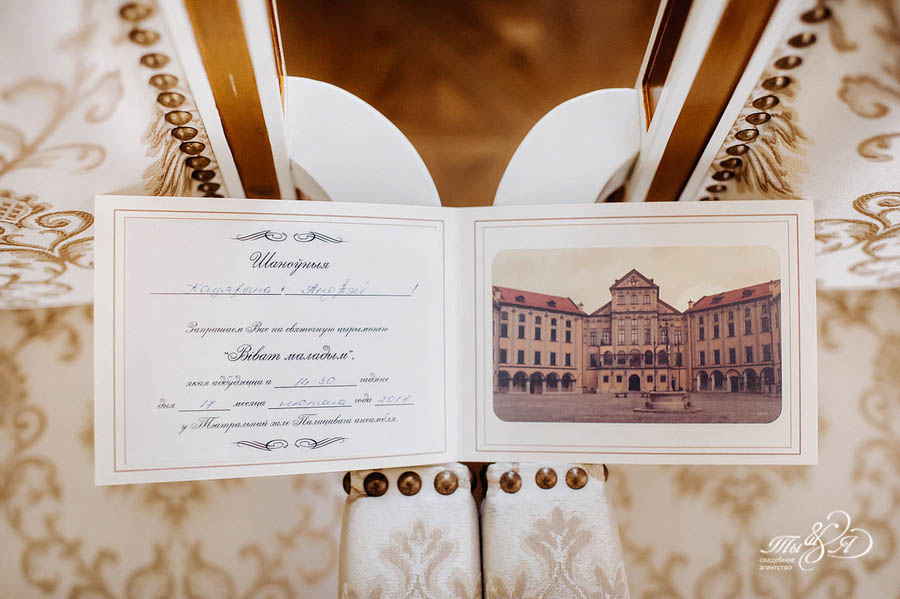 Шаноўныя
Кацярына і Андрэй !
Запрашаем Вас на святочную цырымонію
"Віват маладым",
якая адбудзецца а 14-30 гадзіне
дня 17 месяца лютага года 2017
у Тэатральнай зале Палацавага ансамбля.
Ты & Я
свадебное
агентство